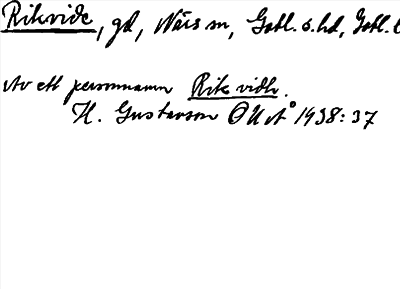 Rikvide, gd, Närs sn, Gotl. s. hd, Gotl. l
Av ett personnamn Rikvidh.
H. Gustavson OUÅ 1938: 37